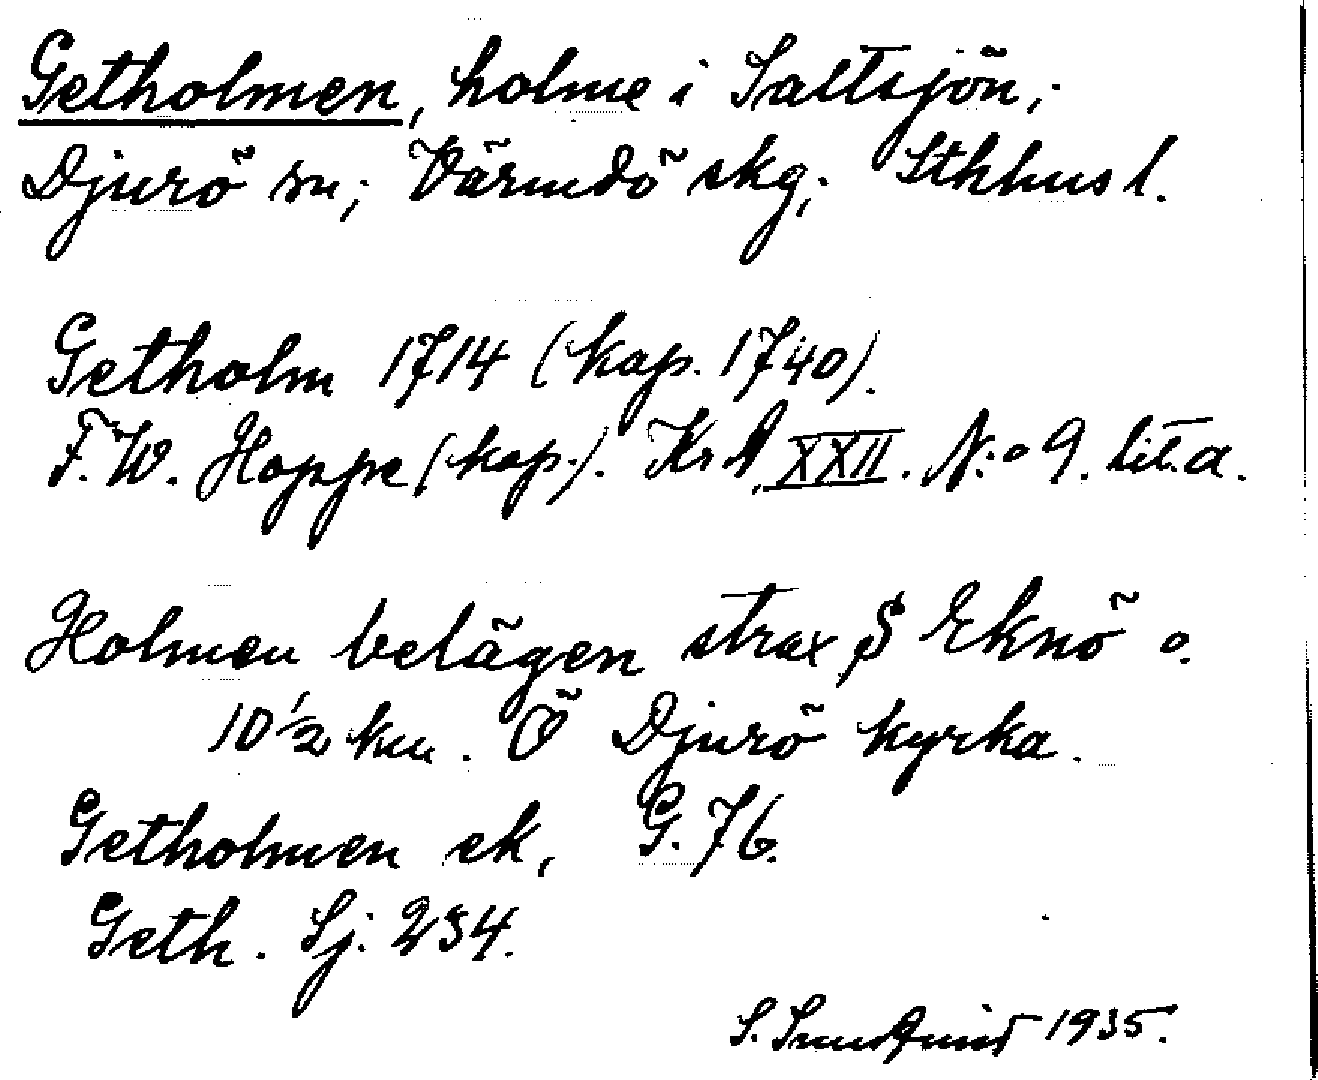 Getholmen, holme i Saltsjön,
Djurö sn; Värmdö skg; Sthlms l.
Getholm 1714 (kop. 1740).
F.W. Hoppe (kop.). KrA, XXII. N:o 9. lit.a.
Holmen belägen strax S Eknö o.
10 1/2 km. Ö Djurö kyrka.
Getholmen ek, G.76.
Geth. Sj. 234.
S. 1935.